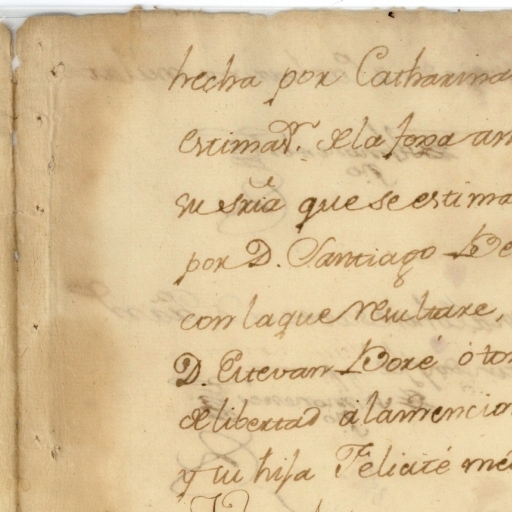 hecha por Catharina
estimaz.n de la foxa an
su sria que se estima
por D. Santiago
con la que resultare,
D. Estevan Boré, ó
de libertad á la mencio
y su hija Felicité